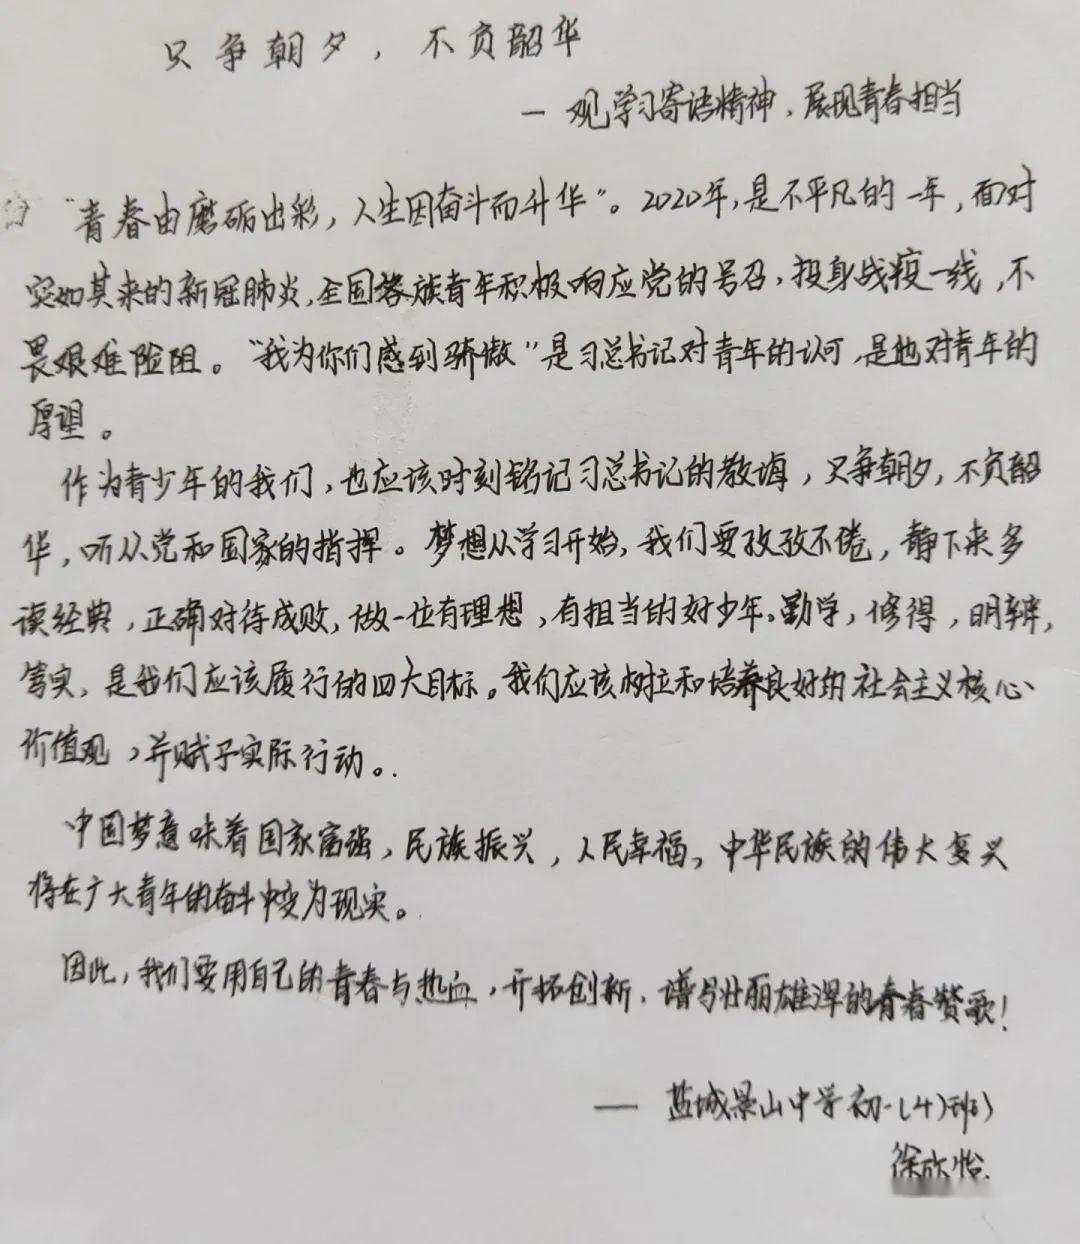 只争朝夕，不负韶华
一 观学习寄语精神，展现青春担当
"青春由磨砺出彩，人生因奋斗而升华"。2020年，是不平凡的一年，面对
突如其来的新冠肺炎，全国各族青年积极响应党的号召，投身战疫一线，不
畏艰难险阻。"我为你们感到骄傲"是习总书记对青年的认可，是他对青年的
厚望。
作为青少年的我们，也应该时刻铭记习总书记的教诲，只争朝夕，不负韶
华，听从党和国家的指挥。梦想从学习开始，我们要孜孜不倦，静下来多
读经典，正确对待成败，做一位有理想，有担当的好少年。勤学，修得，明辨，
笃实，是我们应该履行的四大目标。我们应该树立和培养良好的社会主义核心
价值观，并赋予实际行动。.
中国梦意味着国家富强，民族振兴，人民幸福，中华民族的伟大复兴
将在广大青年的奋斗中变为现实。
因此，我们要用自己的青春与热血，开拓创新，谱写壮丽雄浑的青春赞歌！
— 盐城景山中学初一(4)班)
徐欣怡.